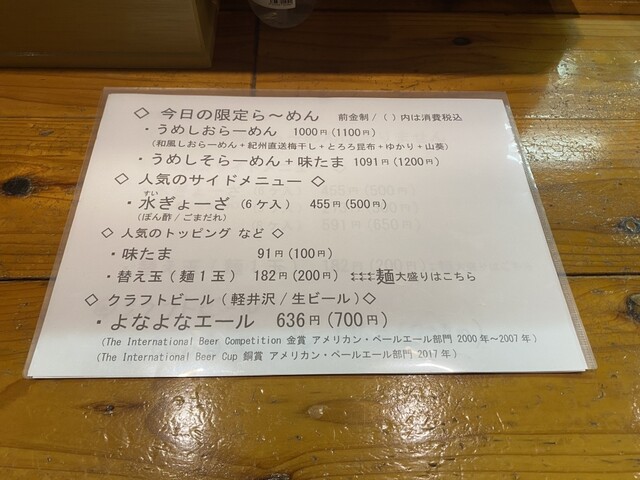 ◇ 今日の限定ら～めん 前金制/( )内は消費税込
・うめしおらーめん 1000円(1100円)
(和風しおらーめん+紀州直送梅干し+とろろ昆布+ゆかり+山葵)
・うめしそらーめん+味たま 1091円(1200円)
◇ 人気のサイドメニュー ◇
すい
・水ぎょーざ (6ケ入) 455円(500円)
(ぽん酢/ごまだれ)
◇ 人気のトッピング など ◇
・味たま 91円(100円)
・替え玉(麺1玉) 182円(200円) 麺大盛りはこちら
◇ クラフトビール(軽井沢/生ビール)◇
・よなよなエール 636円(700円)
(The International Beer Competition 金賞 アメリカン・ペールエール部門 2000年～2007年)
(The International Beer Cup 銅賞 アメリカン・ペールエール部門 2017年)